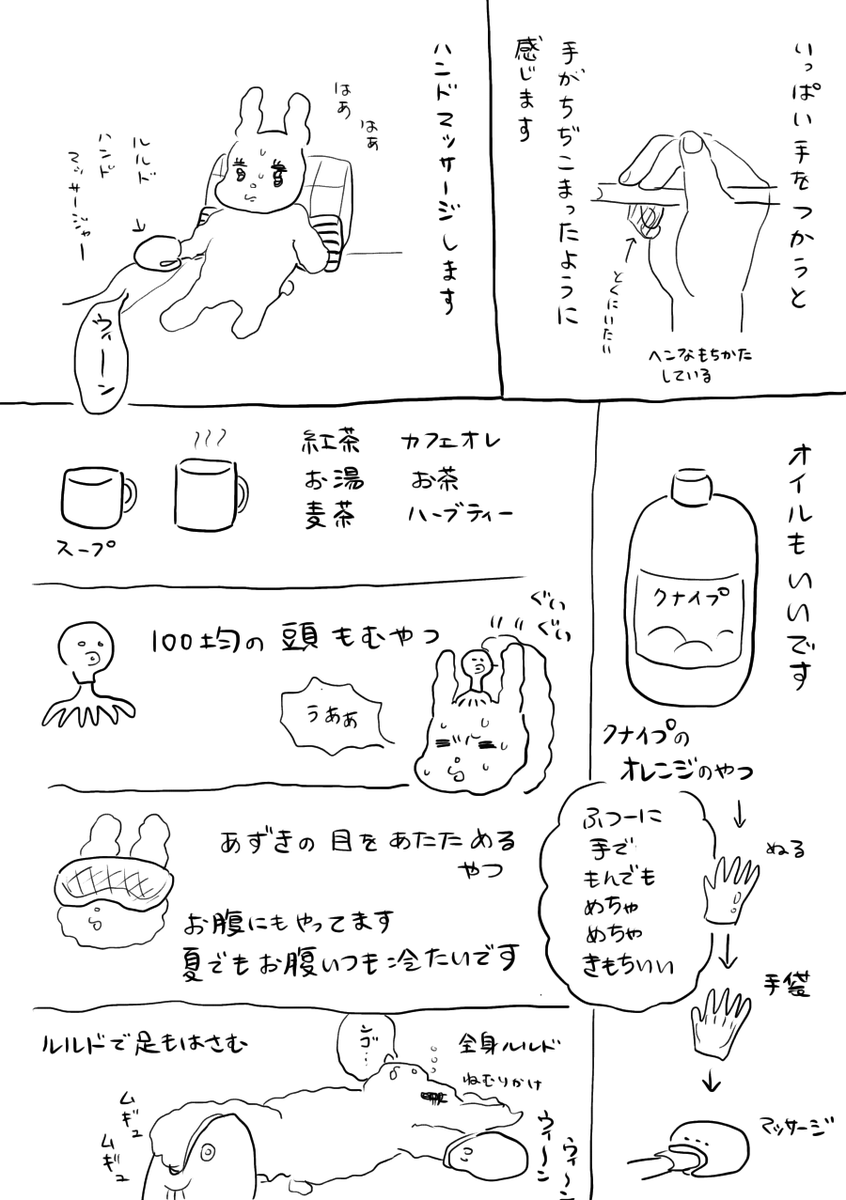 いっぱい手をつかうと
手がちぢこまったように
感じます
とくにいたい
ヘンなもちかた
している
ハンドマッサージします
はぁ
はぁ
ルルド
ハンド
マッサージャー
ウィーン
オイルもいいです
クナイプ
クナイプの
オレンジのやつ
ぬる
ふつーに
手で
もんでも
めちゃ
めちゃ
きもちいい
手袋
マッサージ
紅茶 カフェオレ
お湯 お茶
麦茶 ハーブティー
スープ
100均の頭もむやつ
ぐい
ぐい
うああ
あずきの目をあたためる
やつ
お腹にもやってます
夏でもお腹いつも冷たいです
ルルドで足もはさむ
全身ルルド
ねむりかけ
ンゴ…
ムギュ
ムギュ
ウィ〜ン
ウィ〜ン